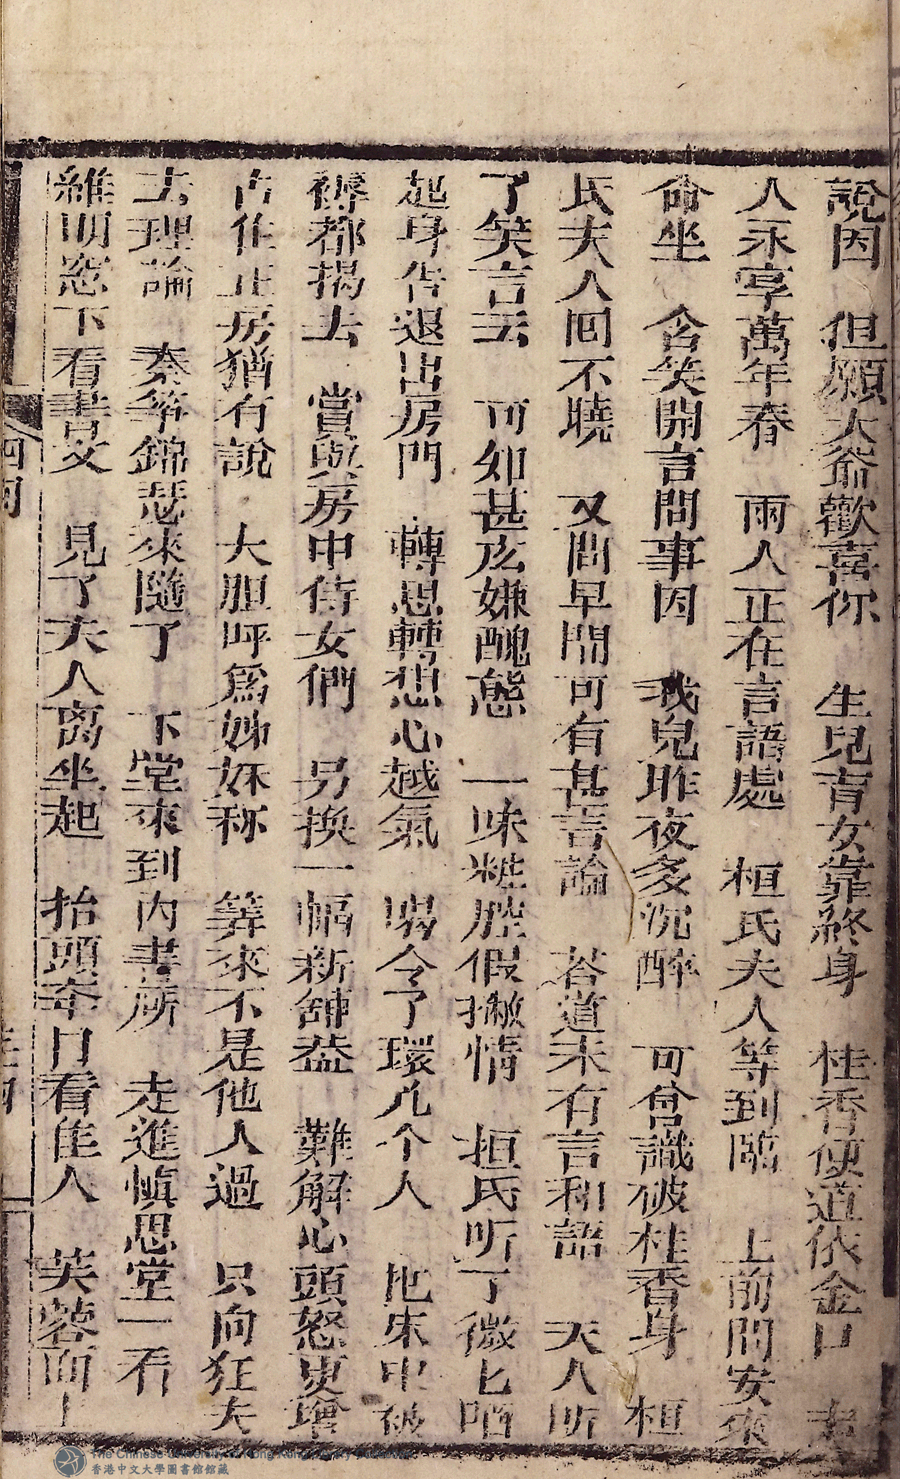 說因 但願大爺歡喜你 生兒育女靠終身 桂香便道依金口 夫
人永寧萬年春 兩人正在言語處 桓氏夫人等到臨 上前問安來
命坐 含笑開言問事因 我兒昨夜多沉醉 可曾識破桂香身 桓
氏夫人囘不曉 又問早間可有甚言論 答道未有言和語 夫人听
了笑言云 可如甚庅嫌醜態 一味粧腔假撇情 桓氏听了微匕哂
起身告退出房門 轉思轉想心越氣 喝令了環凢个人 把床中被
褥都揭去 賞與房中侍女們 另换一幅新鋪葢 難解心頭怒更增
古住正房猶有說 大胆呼爲姊妹称 筭來不是他人過 只向狂夫
去理論 秦筝錦瑟來隨了 下堂來到内書所 走進愼思堂一看
維明窓下看書文 見了夫人离坐起 抬頭舉目看佳人 芙蓉面上
四囘
The Chinese University of Hong Kong Library
香港中文大學圖書館館藏